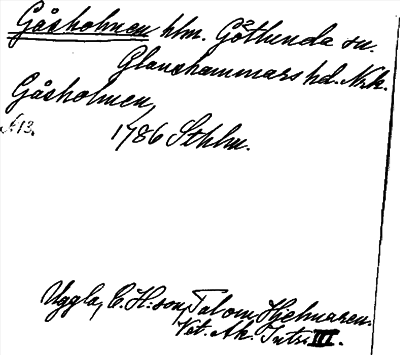 Gåsholmen hlm. Götlunda sn.
Glanshammars hd. Nrk.
Gåsholmen,
s. 13.
1786 Sthlm.
Uggla, C. H:son, Tal om Hjelmaren.
Vet. Ak. Intr. III.